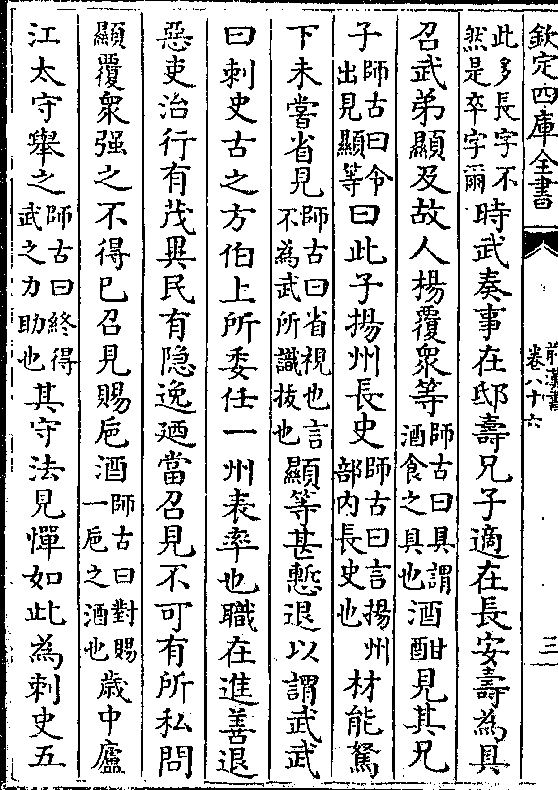 欽定四庫全書
前漢書
卷八十六
三
此多長字不
然是卒字爾
時武奏事在邸壽兄子適在長安壽為具
召武弟顯及故人楊覆衆等
師古曰具謂
酒食之具也
酒酣見其兄
子
師古曰令
出見顯等
曰此子揚州長史
師古曰言揚州
部内長史也
材能駑
下未嘗省見
師古曰省視也言
不為武所識拔也
顯等甚慙退以謂武武
曰刺史古之方伯上所委任一州表率也職在進善退
惡吏治行有茂異民有隐逸廼當召見不可有所私問
顯覆衆强之不得已召見賜巵酒
師古曰對賜
一巵之酒也
歳中廬
江太守舉之
師古曰終得
武之力助也
其守法見憚如此為刺史五